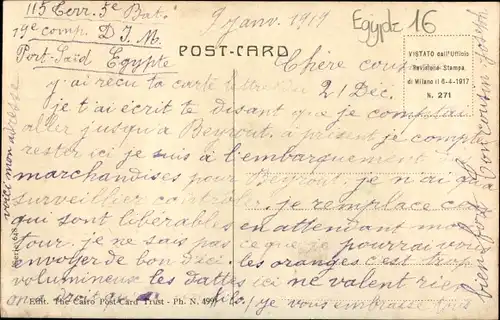 115 Terr. 5e Bat.
19e comp. D I M
Port-Saïd Egypte
9 janv. 1919
Egypte 16
POST-CARD
VISTATO dall'Ufficio
Revisione Stampa
di Milano il 6-4-1917
N. 271
Chère
j'ai reçu ta carte lettre du
21 Dec.
je t'ai écrit te disant que je comptais
aller jusqu'à Beyrout. à présent je compte
rester ici je suis à l'embarquement
marchandises pour Beyrout, je n'ai qu'à
surveiller contrôler. je remplace
qui sont libérables en attendant mon
tour. je ne sais pas ce que je pourrai
envoyer de bon d'ici. les oranges c'est trop
volumineux les dattes ici ne valent rien
je vous embrasse
voici mon adresse
bien fort
bon cousin Joseph
Edit. The Cairo Post-Card Trust - Ph. N.